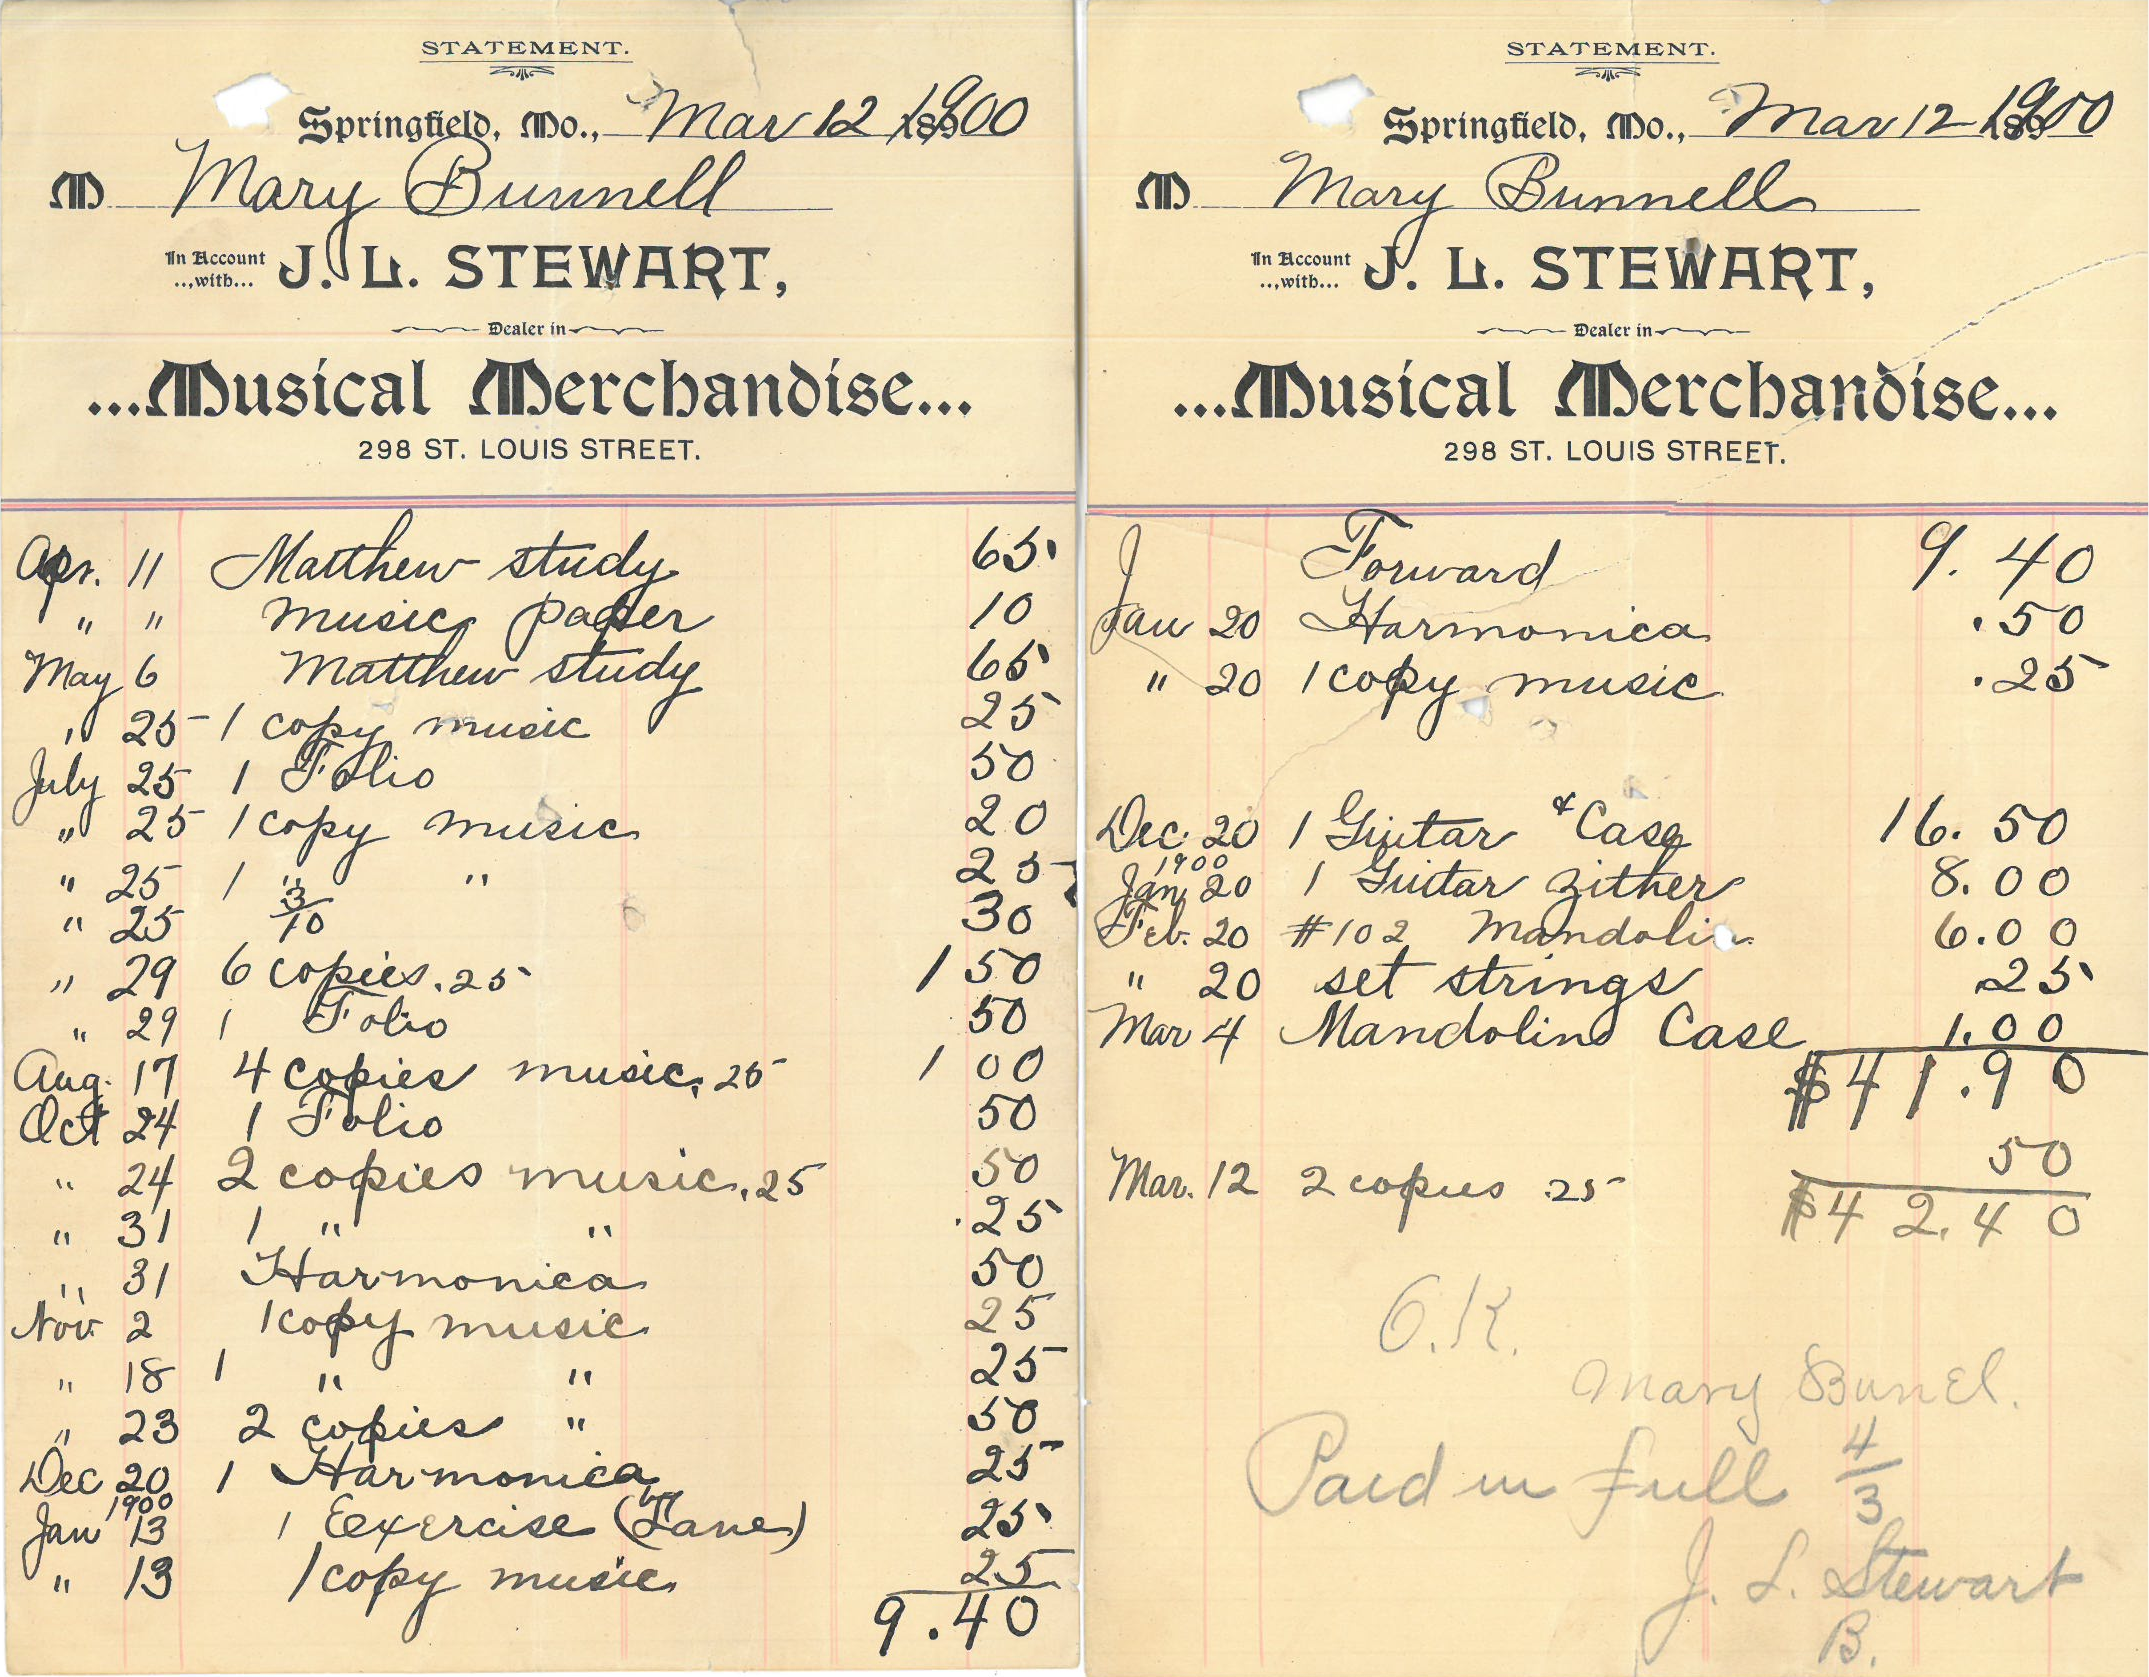 STATEMENT.
Springfield, Mo., Mar 12 1900
M Mary Bunnell
In Account
...with... J. L. STEWART,
Dealer in
...Musical Merchandise...
298 ST. LOUIS STREET.
Apr. 11 Matthew study 65
" " music paper 10
May 6 Matthew study 65
" 25 1 copy music 25
July 25 1 Folio 50
" 25 1 copy music 20
" 25 1 " " 25
" 25 3/10 30
" 29 6 copies .25 1 50
" 29 1 Folio 50
Aug. 17 4 copies music .25 1 00
Oct 24 1 Folio 50
" 24 2 copies music .25 50
" 31 1 " " .25
" 31 Harmonica 50
Nov. 2 1 copy music 25
" 18 1 " " 25
" 23 2 copies " 50
Dec 20 1 Harmonica 25
1900
Jan 13 1 Exercise (by Lane) 25
" 13 1 copy music 25
9.40
STATEMENT.
Springfield, Mo., Mar 12 1900
M Mary Bunnell
In Account
...with... J. L. STEWART,
Dealer in
...Musical Merchandise...
298 ST. LOUIS STREET.
J Forward 9.40
Jan 20 Harmonica .50
" 20 1 copy music .25
Dec. 20 1 Guitar & Case 16.50
1900
Jan 20 1 Guitar Zither 8.00
Feb. 20 #102 Mandolin 6.00
" 20 set strings .25
Mar 4 Mandolin Case 1.00
$41.90
Mar. 12 2 copies .25 50
$42.40
O.K.
Mary Bunel.
Paid in full 4/3
J. L. Stewart
B.